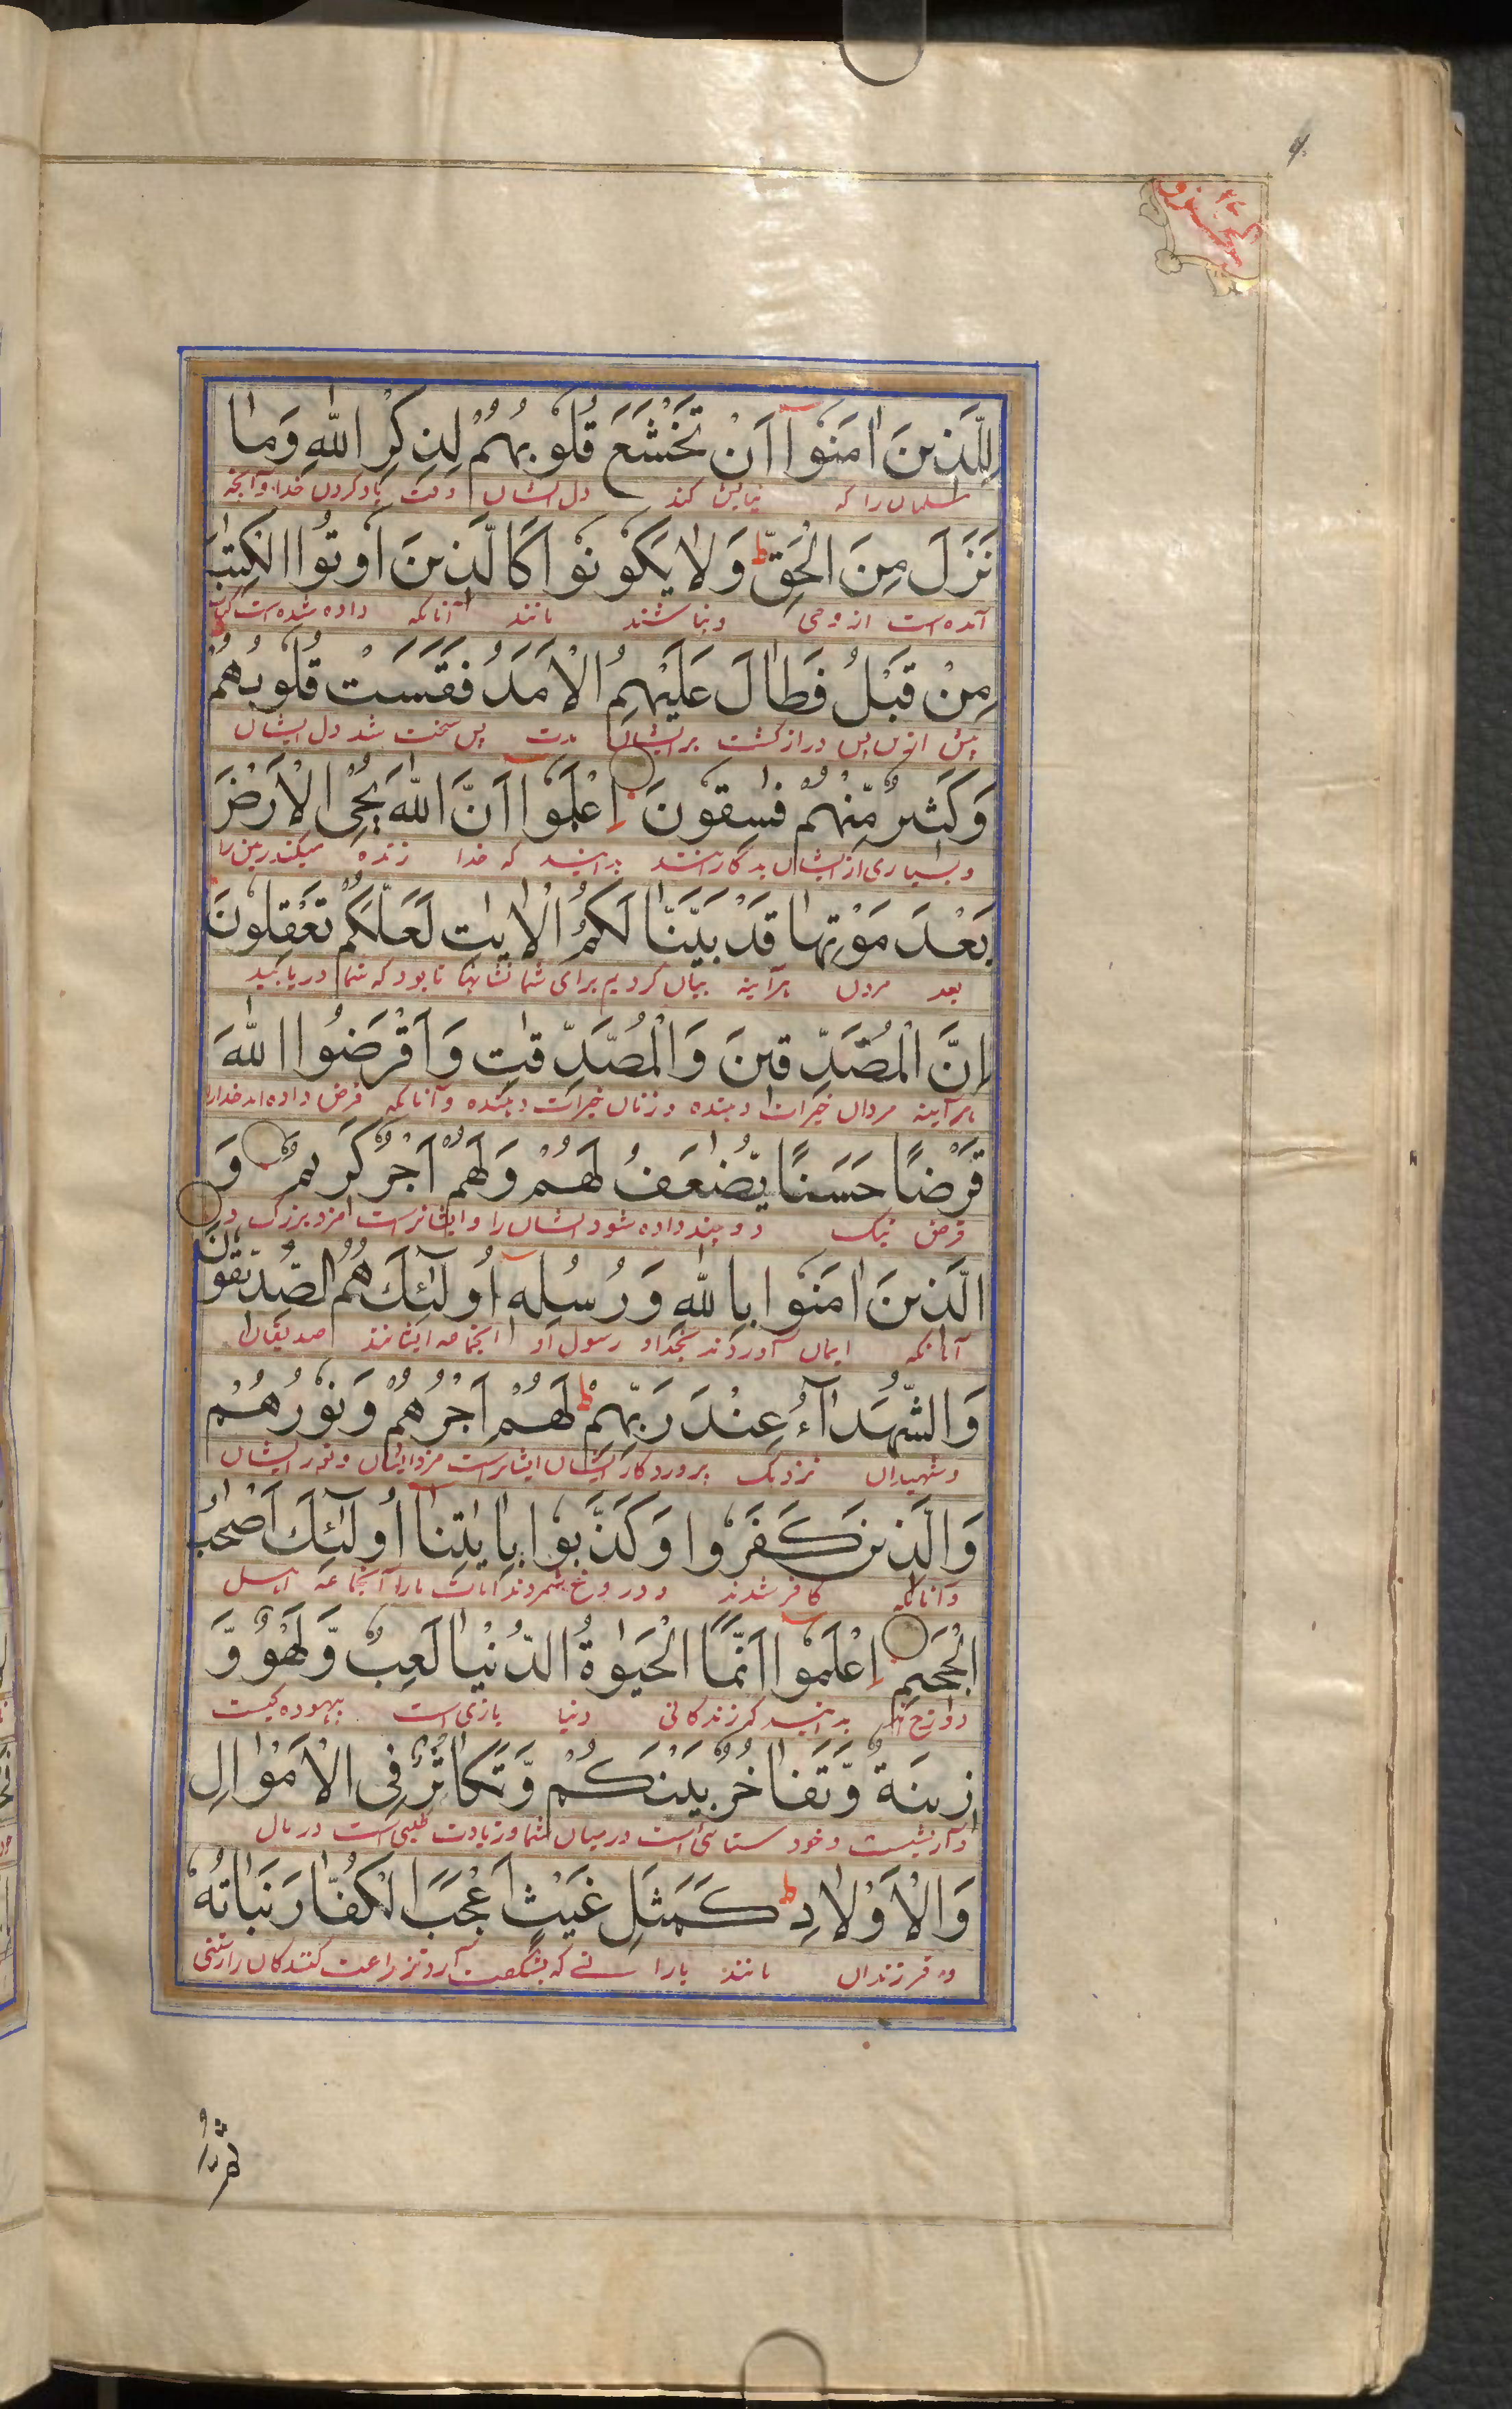 لِلَّذِينَ اٰمَنُوْٓا اَنْ تَخْشَعَ قُلُوْبُهُمْ لِذِكْرِ اللّٰهِ وَمَا
مسلمانرا که نیایش کند دل ایشان وقت یاد کردن خدا و آنچه
نَزَلَ مِنَ الْحَقِّ ط وَلَا يَكُوْنُوْا كَالَّذِينَ اُوْتُوا الْكِتٰبَ
آمده است از وحی و نباشند مانند آنانکه داده شده است کتاب
مِنْ قَبْلُ فَطَالَ عَلَيْهِمُ الْاَمَدُ فَقَسَتْ قُلُوْبُهُمْ
پیش ازین پس دراز گشت بر ایشان مدت پس سخت شد دل ایشان
وَكَثِيرٌ مِّنْهُمْ فٰسِقُوْنَ اِعْلَمُوْٓا اَنَّ اللّٰهَ يُحْيِ الْاَرْضَ
و بسیاری از ایشان بدکارانند بدانید که خدا زنده میکند زمین را
بَعْدَ مَوْتِهَا قَدْ بَيَّنَّا لَكُمُ الْاٰيٰتِ لَعَلَّكُمْ تَعْقِلُوْنَ
بعد مردن هرآینه بیان کردیم برای شما نشانها تا بود که شما دریابید
اِنَّ الْمُصَّدِّقِينَ وَالْمُصَّدِّقٰتِ وَاَقْرَضُوا اللّٰهَ
هرآینه مردان خیرات دهنده و زنان خیرات دهنده و آنانکه قرض داده اند خدارا
قَرْضًا حَسَنًا يُّضٰعَفُ لَهُمْ وَلَهُمْ اَجْرٌ كَرِيمٌ وَ
قرض نیک دو چند داده شود ایشان را و ایشانراست مزد بزرگ و
الَّذِينَ اٰمَنُوْا بِاللّٰهِ وَرُسُلِهٖٓ اُولٰٓئِكَ هُمُ الصِّدِّيقُوْنَ
آنانکه ایمان آوردند بخدا و رسول او آنجماعه ایشانند صدیقان
وَالشُّهَدَآءُ عِنْدَ رَبِّهِمْ ط لَهُمْ اَجْرُهُمْ وَنُوْرُهُمْ
و شهیدان نزدیک پروردگار ایشان ایشانراست مزد ایشان و نور ایشان
وَالَّذِينَ كَفَرُوْا وَكَذَّبُوْا بِاٰيٰتِنَآ اُولٰٓئِكَ اَصْحٰبُ
و آنانکه کافر شدند و دروغ شمردند آیات مارا آنجماعه اهل
الْجَحِيمِ اِعْلَمُوْٓا اَنَّمَا الْحَيٰوةُ الدُّنْيَا لَعِبٌ وَّلَهْوٌ وَّ
دوزخ اند بدانید که زندگانی دنیا بازی است بیهوده گیست
زِينَةٌ وَّتَفَاخُرٌ بَيْنَكُمْ وَتَكَاثُرٌ فِى الْاَمْوَالِ
و آرایشیست و خود ستائی است درمیان شما و زیادت طلبی است در مال
وَالْاَوْلَادِ ط كَمَثَلِ غَيْثٍ اَعْجَبَ الْكُفَّارَ نَبَاتُهٗ
و فرزندان مانند بارانی که بشگفت آرد زراعت کنندگان را رستنی